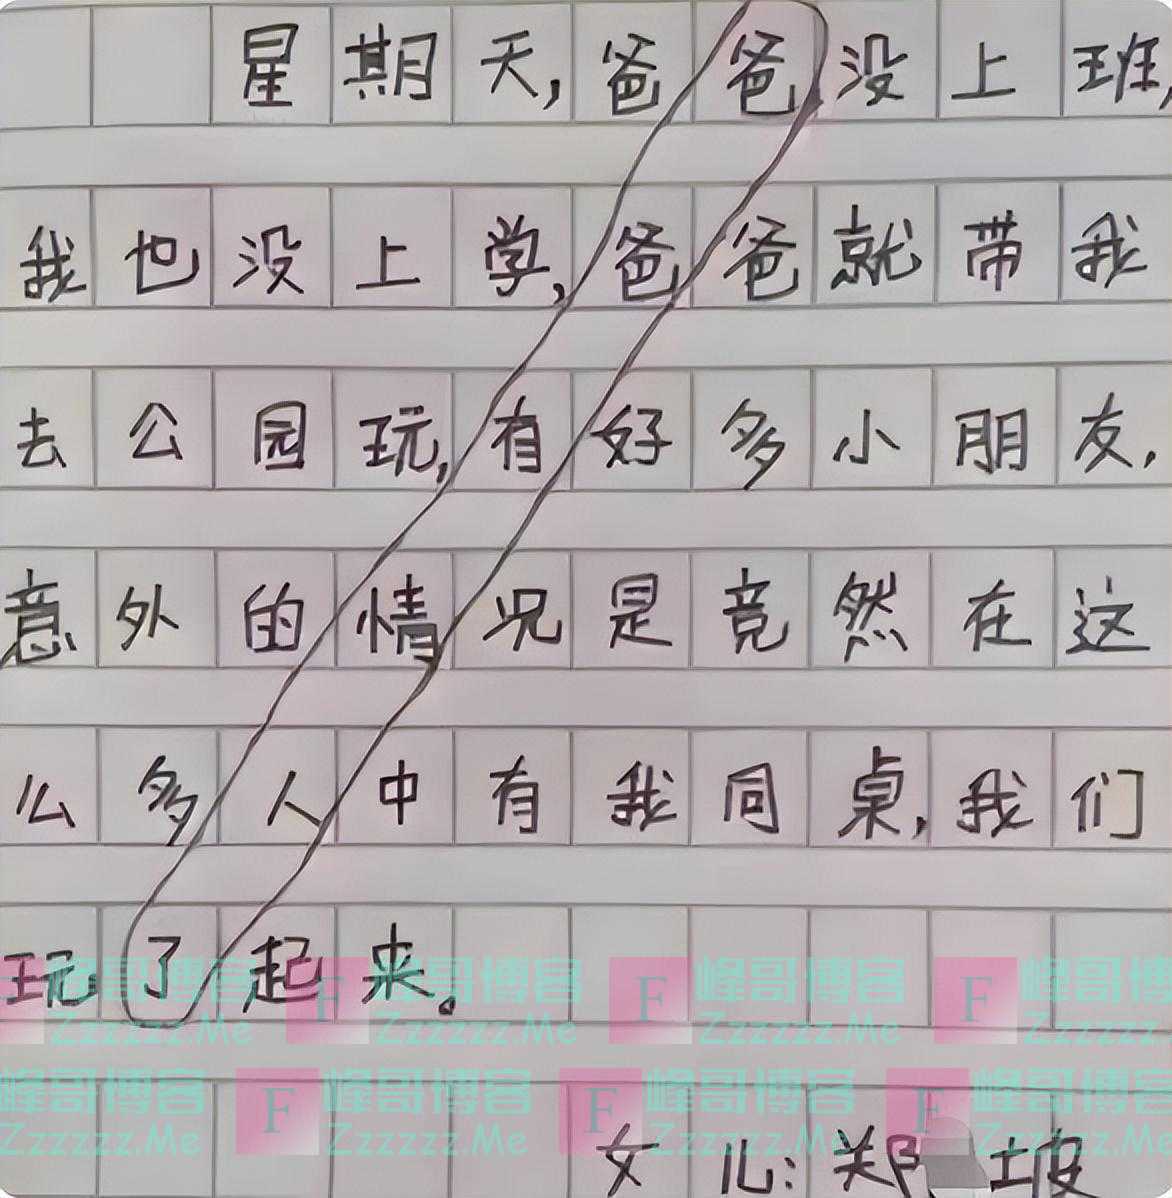 星期天，爸爸没上班，
我也没上学，爸爸就带我
去公园玩，有好多小朋友，
意外的情况是竟然在这
么多人中有我同桌，我们
玩了起来。
峰哥博客 F 峰哥博客 F 峰哥博客 F 峰哥博客
Zzzzzz.Me Zzzzzz.Me Zzzzzz.Me Zzzzzz
峰哥博客 F 峰哥博客 F 峰哥博客 F 峰哥博客
Zzzzzz.Me Zzzzzz.Me Zzzzzz.Me Zzzzzz.Me
女儿：郑